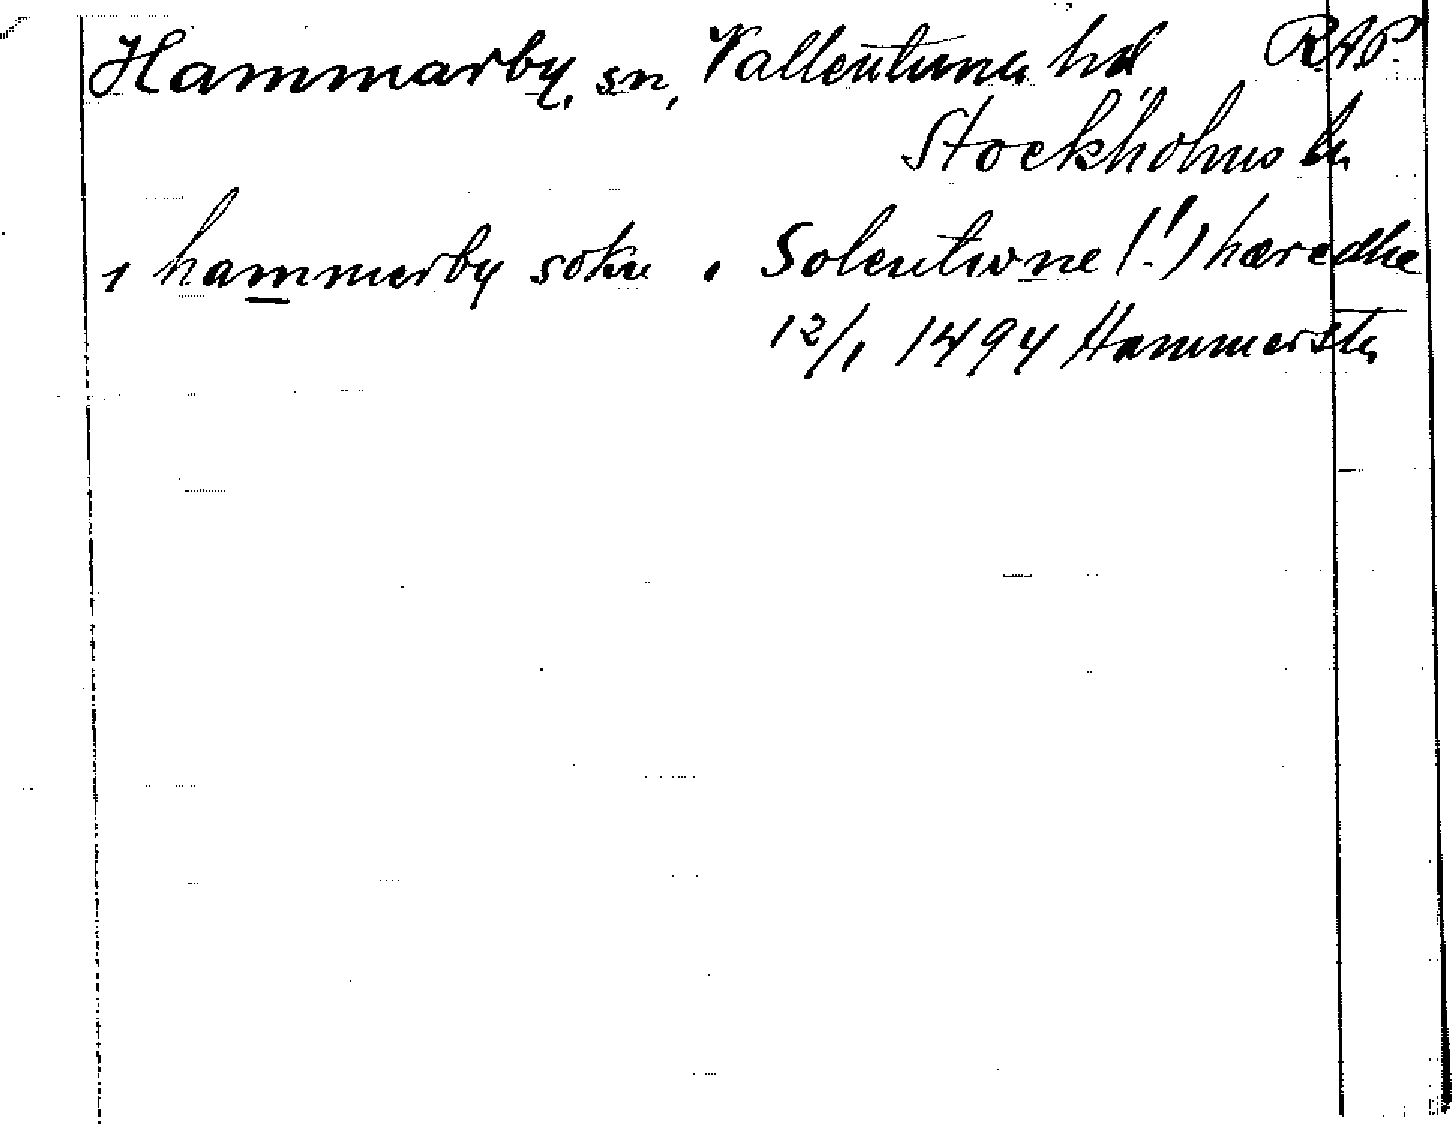 Hammarby, sn, Vallentuna hd RAP
Stockholms l.
i hammerby sokn i Solentwne (!) hæredhe
12/1 1494 Hammersta